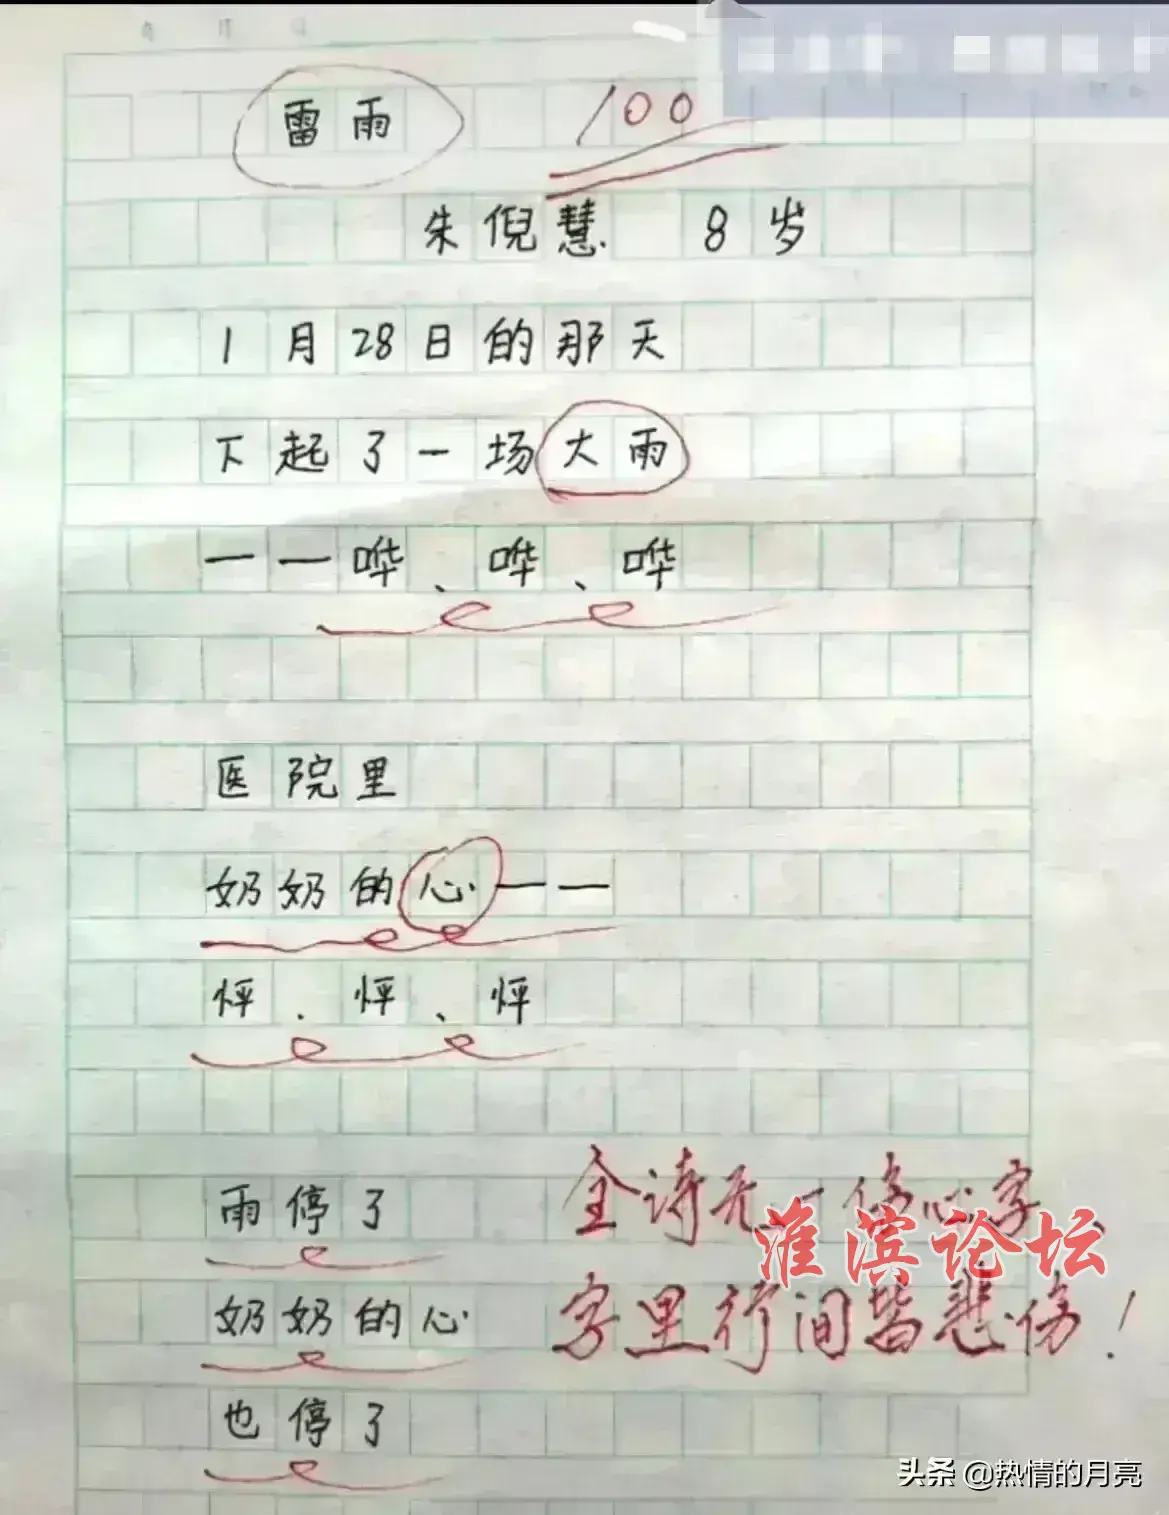 雷雨
100
朱倪慧 8岁
1月28日的那天
下起了一场大雨
——哗、哗、哗
医院里
奶奶的心——
怦、怦、怦
雨停了
奶奶的心
也停了
全诗无一伤心字、
字里行间皆悲伤!
淮滨论坛
头条 @热情的月亮